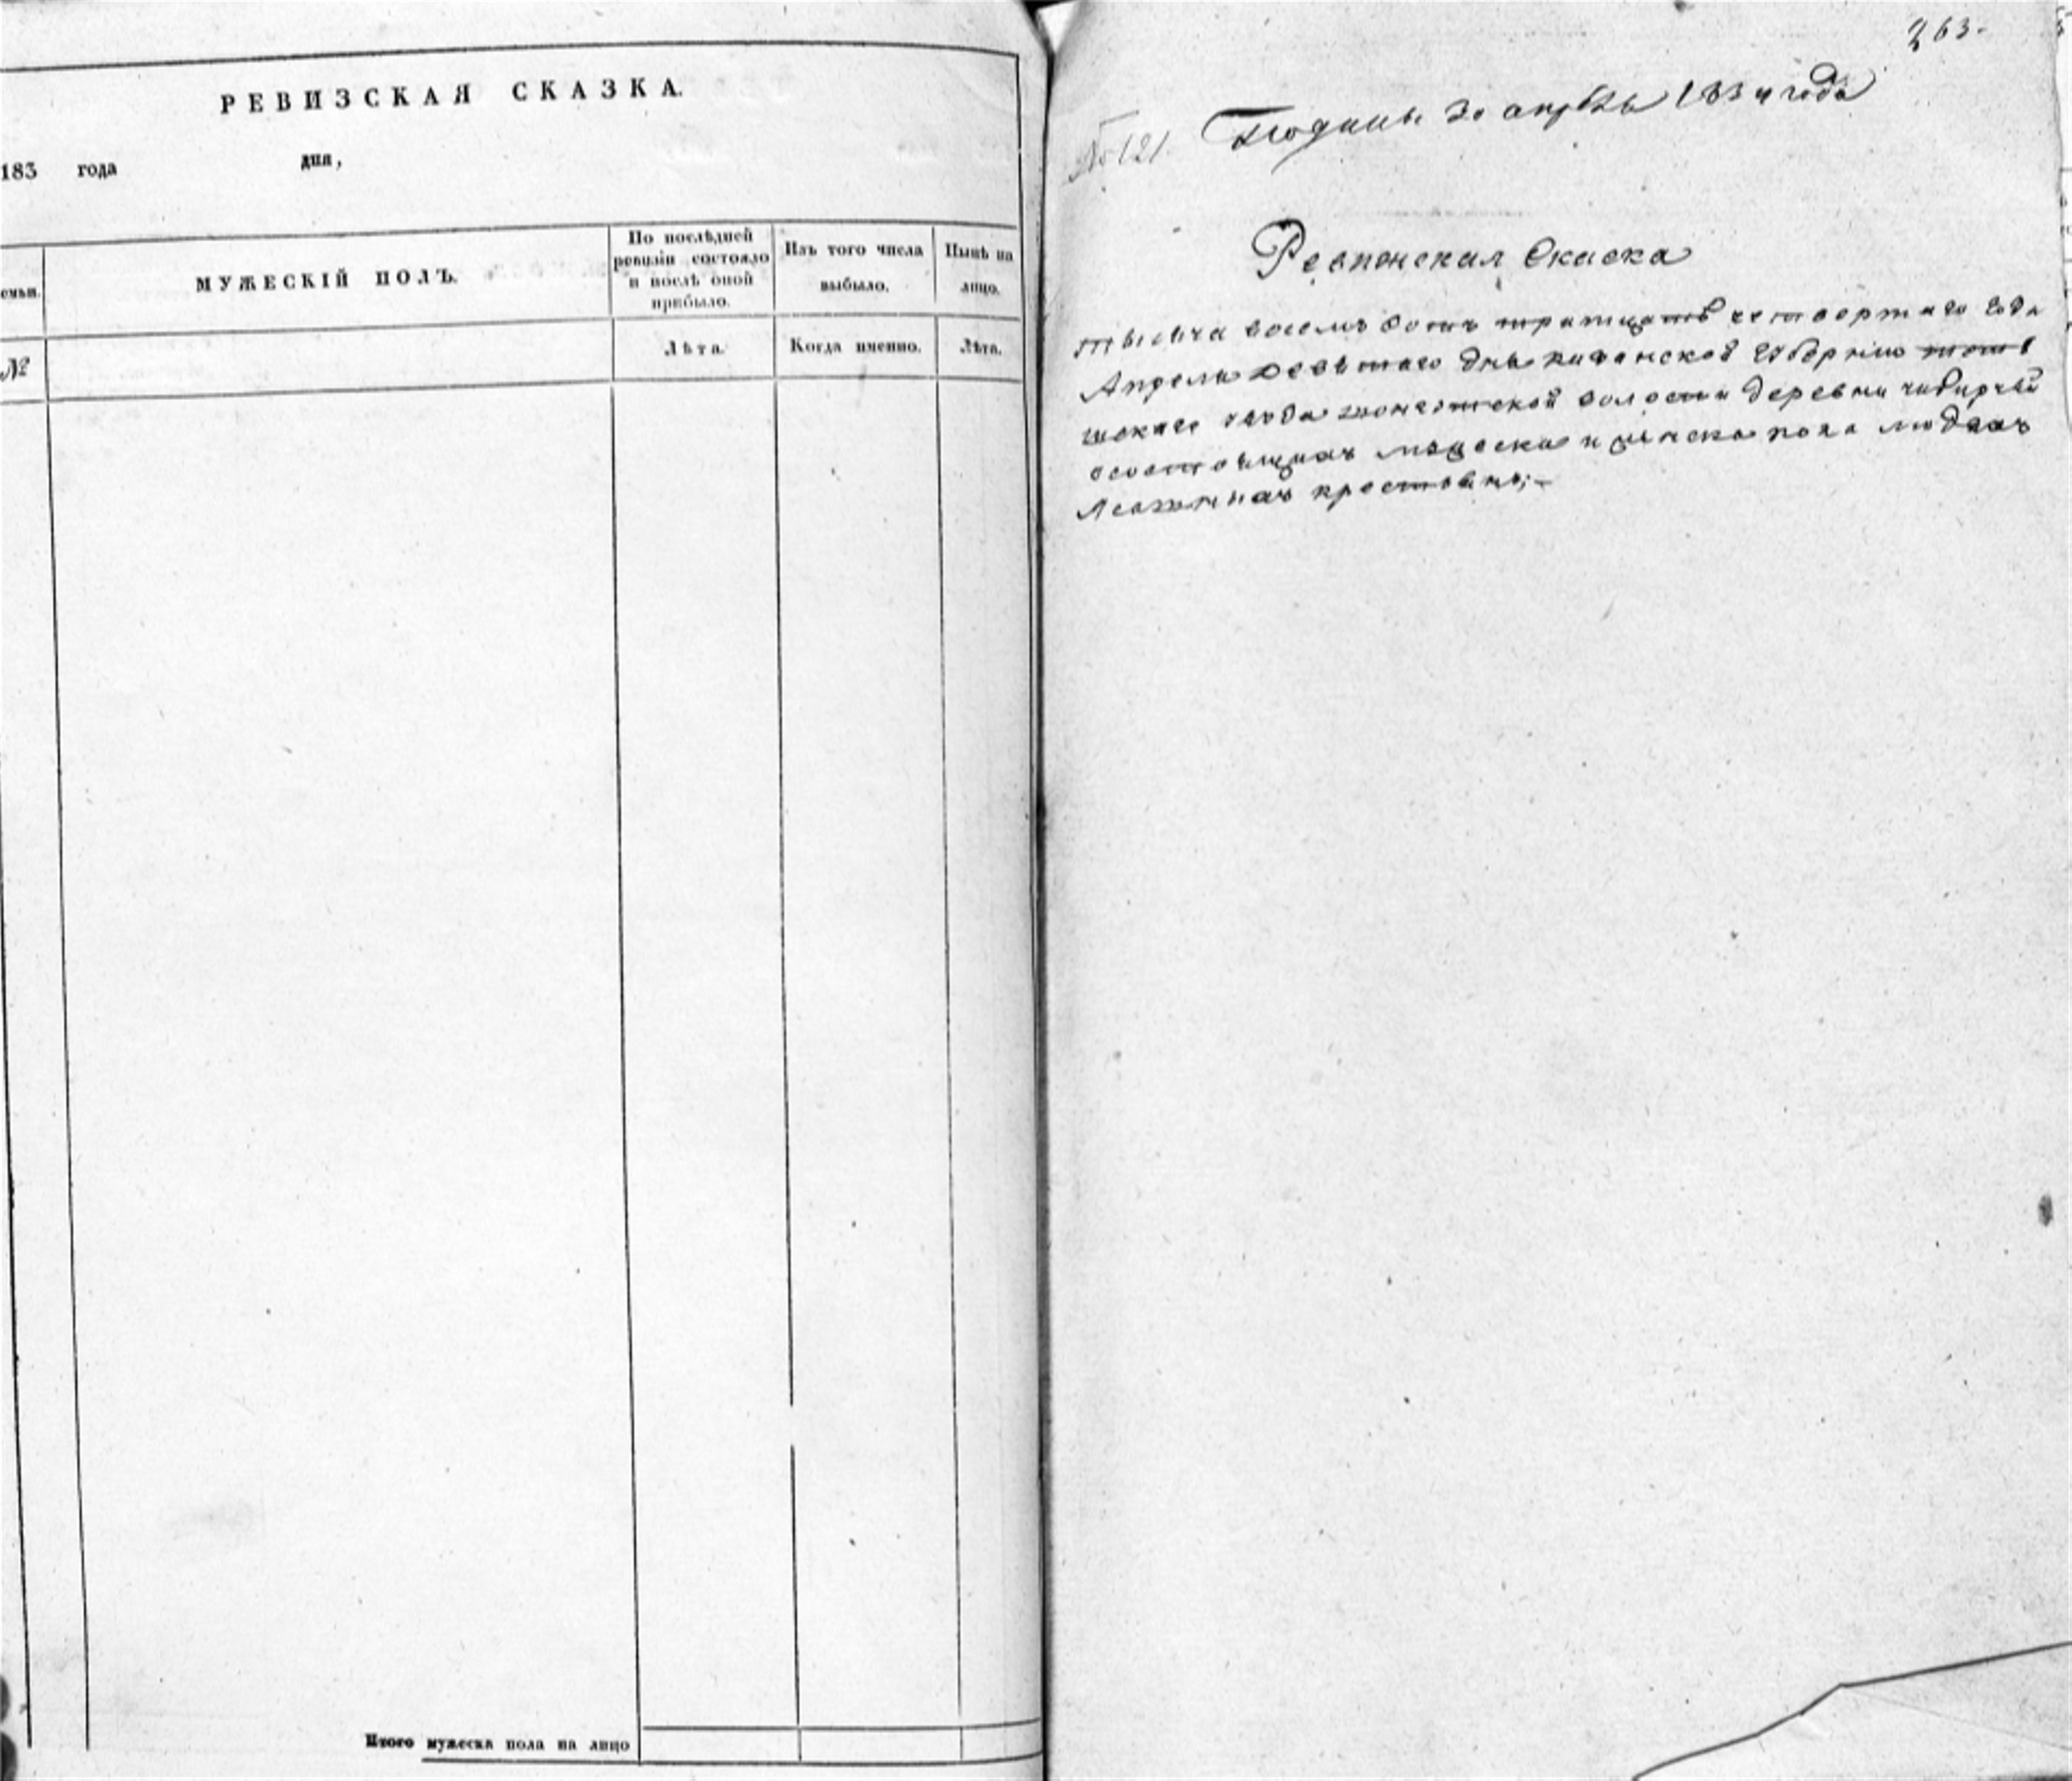 РЕВИЗСКАЯ СКАЗКА.
183 года дня,
семьи.
МУЖЕСКІЙ ПОЛЪ.
По послѣдней ревизіи состояло и послѣ оной прибыло.
Изъ того числа выбыло.
Нынѣ на лицо.
№
Лѣта.
Когда именно.
Лѣта.
Итого мужеска пола на лицо
263.
№ 121. 30 апрѣля 1834 года
Скаска
тысеча восемъ сотъ тратцать четвертаго года
Апреля дня казанской губерніи
уезда волости деревни
состоящихъ мужеска и женска пола людехъ
крестьянъ;-